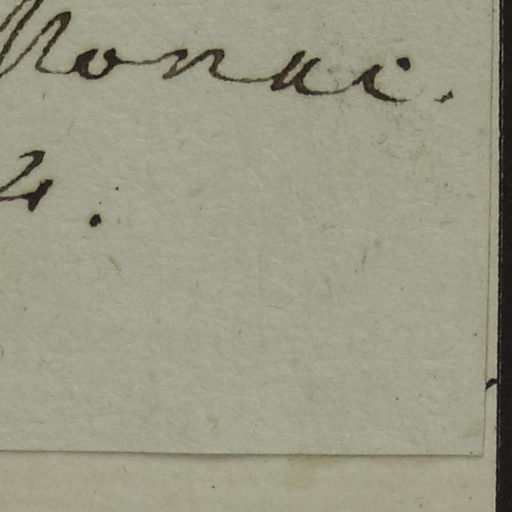 Monac.
4.